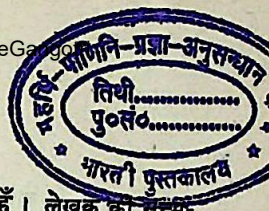 eGangotri
महर्षि-पाणिनि-प्रज्ञा-अनुसन्धान
तिथी..................
पु०सं०..................
भारती पुस्तकालय
हूँ । लेखक की